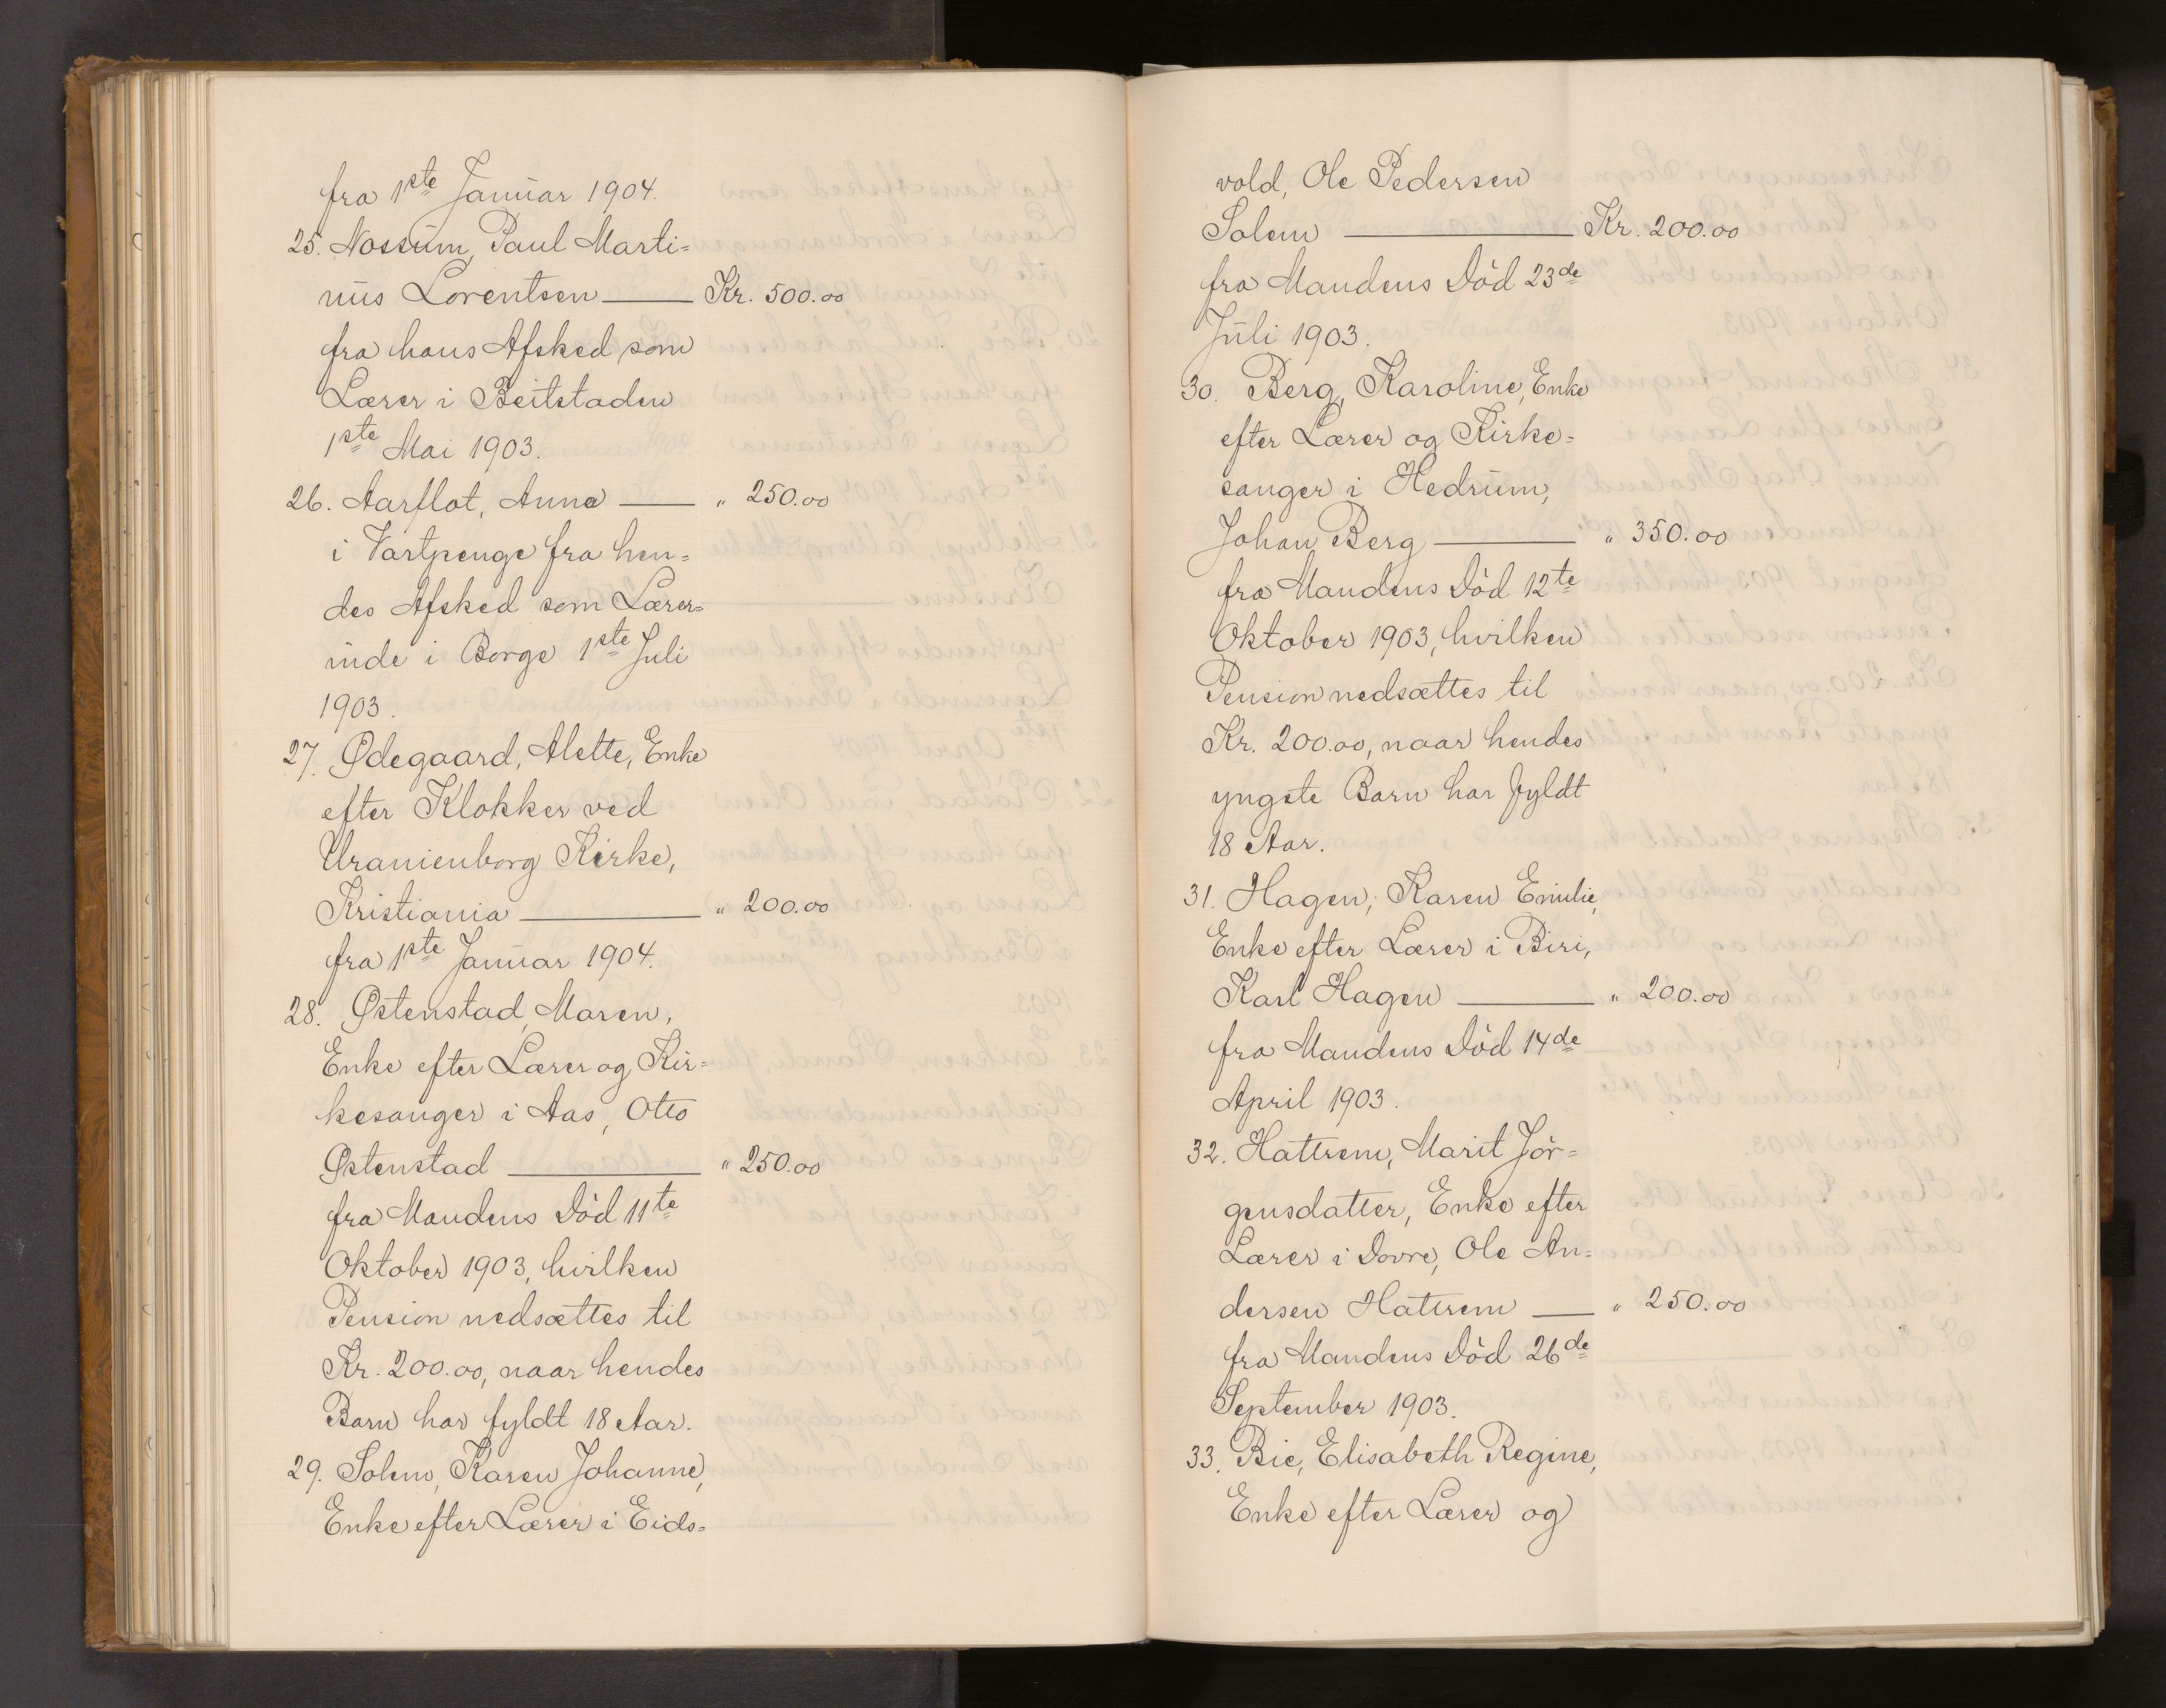 fra 1ste Januar 1904.
25. Nossum, Paul Marti=
nus Lorentsen — Kr. 500.00
fra hans Afsked som
Lærer i Beitstaden
1ste Mai 1903.
26. Aarflot, Anna — " 250.00
i Vartpenge fra hen=
des Afsked som Lærer=
inde i Borge 1ste Juli
1903.
27. Ødegaard, Alette, Enke
efter Klokker ved
Uranienborg Kirke,
Kristiania — " 200.00
fra 1ste Januar 1904.
28. Østenstad, Maren,
Enke efter Lærer og Kir=
kesanger i Aas, Otto
Østenstad — " 250.00
fra Mandens Död 11te
Oktober 1903, hvilken
Pension nedsættes til
Kr. 200.00, naar hendes
Barn har fyldt 18 Aar.
29. Solem, Karen Johanne,
Enke efter Lærer i Eids=
vold, Ole Pedersen
Solem — Kr. 200.00
fra Mandens Död 23de
Juli 1903.
30. Berg, Karoline, Enke
efter Lærer og Kirke=
sanger i Hedrum,
Johan Berg — " 350.00
fra Mandens Död 12te
Oktober 1903, hvilken
Pension nedsættes til
Kr. 200.00, naar hendes
yngste Barn har fyldt
18 Aar.
31. Hagen, Karen Emilie,
Enke efter Lærer i Biri,
Karl Hagen — " 200.00
fra Mandens Död 14de
April 1903.
32. Hattrem, Marit Jör=
gensdatter, Enke efter
Lærer i Dovre, Ole An=
dersen Hattrem — " 250.00
fra Mandens Död 26de
September 1903.
33. Bie, Elisabeth Regine,
Enke efter Lærer og